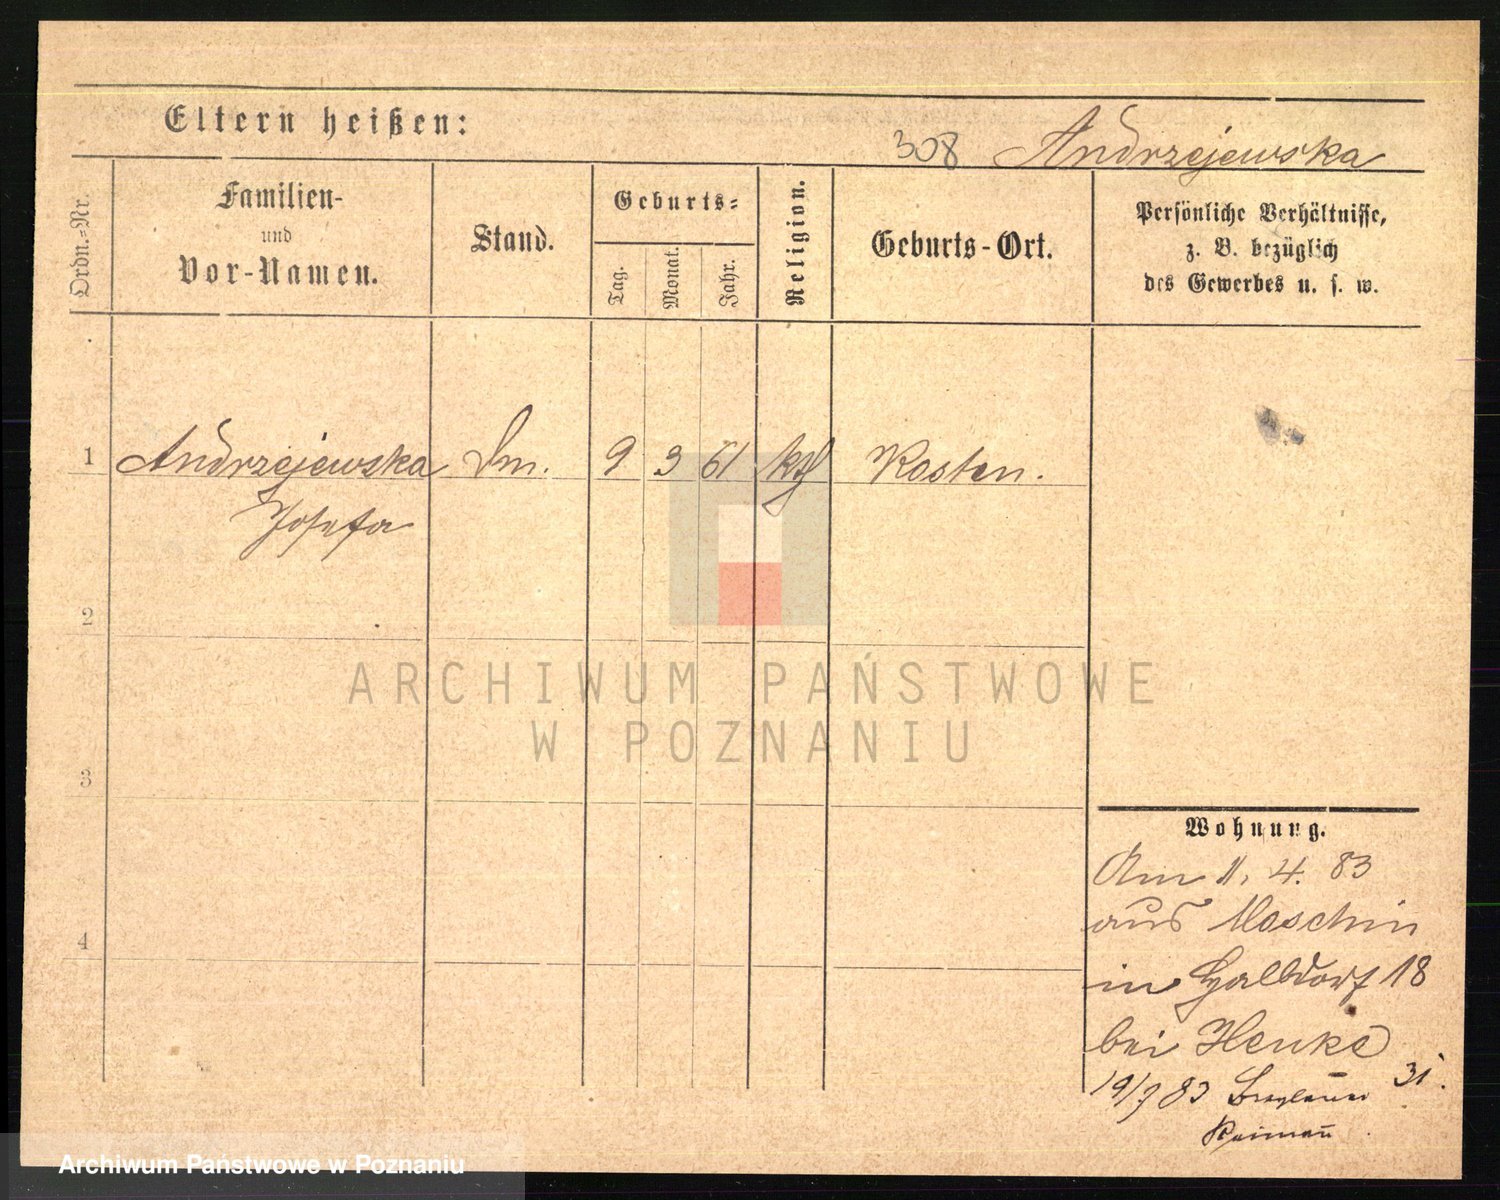 Eltern heißen:
308 Andrzejewska
Ordn.=Nr.
Familien-
und
Vor-Namen.
Stand.
Geburts=
Tag.
Monat.
Jahr.
Religion.
Geburts-Ort.
Persönliche Verhältnisse,
z. B. bezüglich
des Gewerbes u. s. w.
1 Andrzejewska Dm. 9 3 61 kth Kosten.
Josefa
2
3
4
Wohnung.
Am 11. 4. 83
aus Moschin
in Halbdorf 18
bei Henke
19/7 83 Breslauer 31.
ARCHIWUM PAŃSTWOWE
W POZNANIU
Archiwum Państwowe w Poznaniu